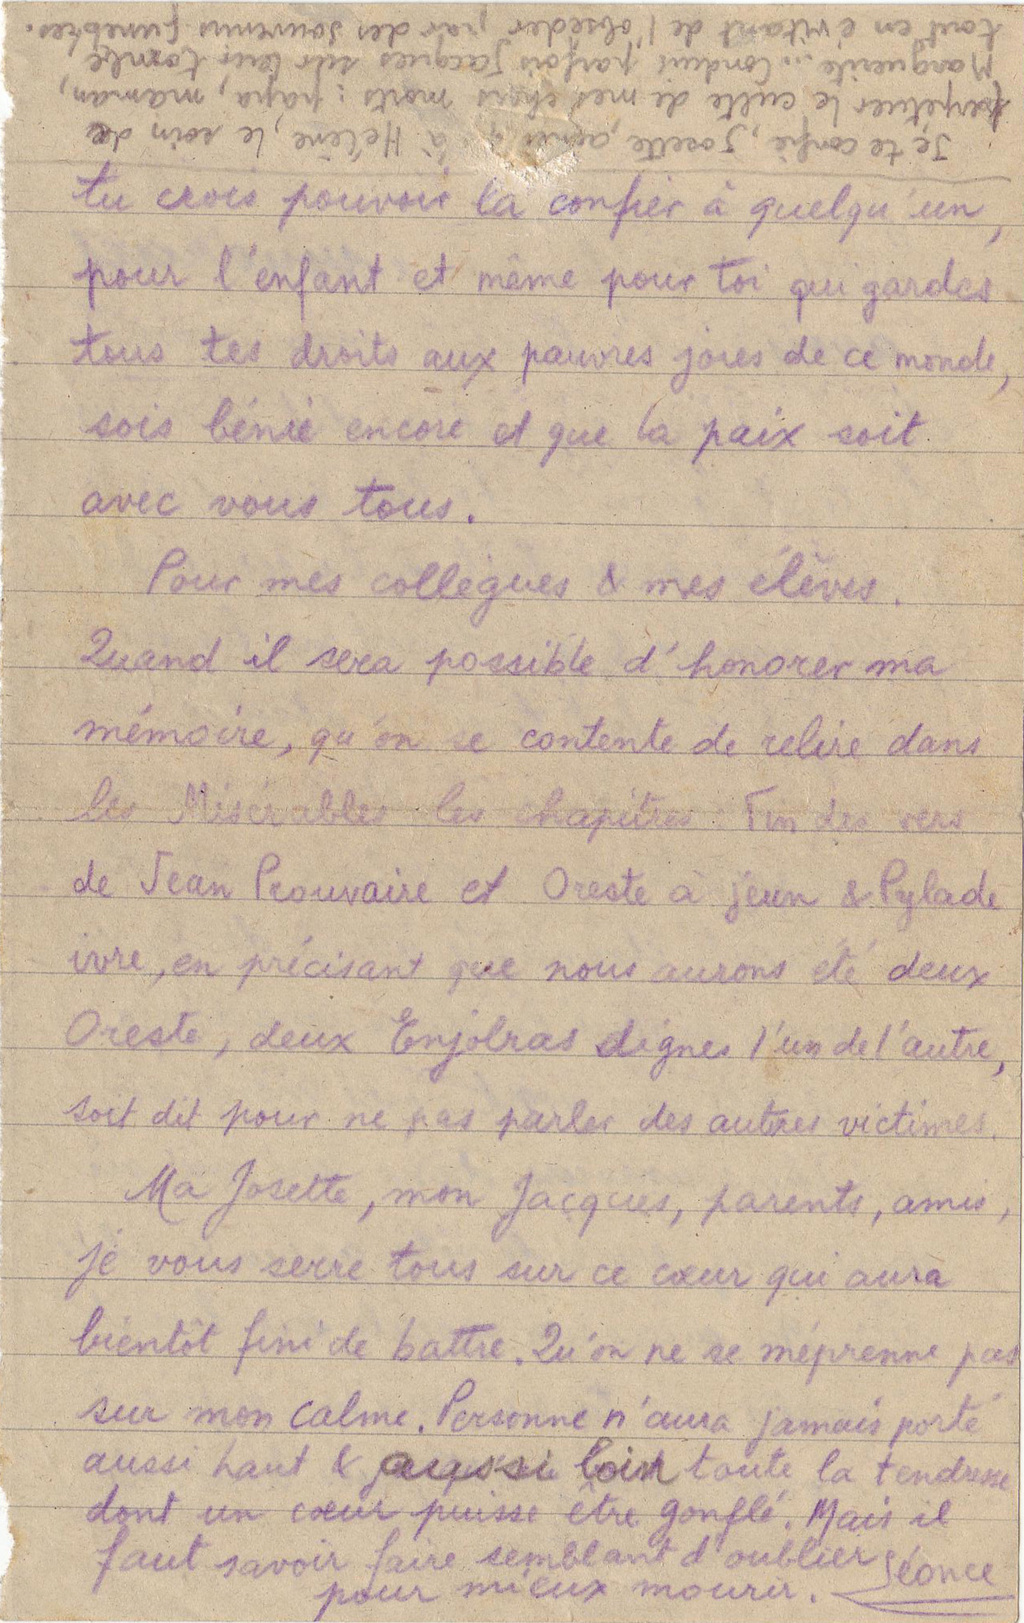 tu crois pouvoir la confier à quelqu'un,
pour l'enfant et même pour toi qui gardes
tous tes droits aux pauvres joies de ce monde,
sois bénie encore et que la paix soit
avec vous tous.
Pour mes collègues & mes élèves.
Quand il sera possible d'honorer ma
mémoire, qu'on se contente de relire dans
les Misérables les chapitres Fin des vers
de Jean Prouvaire et Oreste à jeun & Pylade
ivre, en précisant que nous aurons été deux
Oreste, deux Enjolras dignes l'un de l'autre,
soit dit pour ne pas parler des autres victimes.
Ma Josette, mon Jacques, parents, amis,
je vous serre tous sur ce cœur qui aura
bientôt fini de battre. Qu'on ne se méprenne pas
sur mon calme. Personne n'aura jamais porté
aussi haut & aussi loin toute la tendresse
dont un cœur puisse être gonflé. Mais il
faut savoir faire semblant d'oublier
pour mieux mourir.
Je te confie, Josette, après à Hélène, le soin de
perpétuer le culte de mes chers morts : papa, maman,
Marguerite... Conduis parfois Jacques sur leur tombe,
tout en évitant de l'obséder par des souvenirs funèbres.